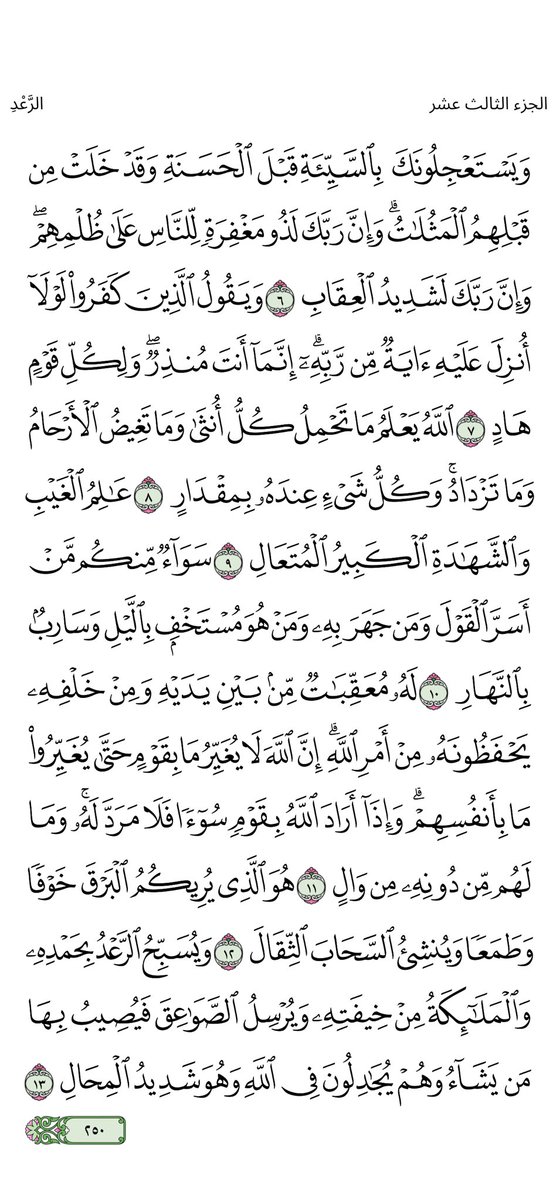 الجزء الثالث عشر
الرَّعْدِ
وَيَسْتَعْجِلُونَكَ بِٱلسَّيِّئَةِ قَبْلَ ٱلْحَسَنَةِ وَقَدْ خَلَتْ مِن
قَبْلِهِمُ ٱلْمَثُلَٰتُۗ وَإِنَّ رَبَّكَ لَذُو مَغْفِرَةٍ لِّلنَّاسِ عَلَىٰ ظُلْمِهِمْۖ
وَإِنَّ رَبَّكَ لَشَدِيدُ ٱلْعِقَابِ ٦ وَيَقُولُ ٱلَّذِينَ كَفَرُوا۟ لَوْلَآ
أُنزِلَ عَلَيْهِ ءَايَةٌ مِّن رَّبِّهِۦٓۗ إِنَّمَآ أَنتَ مُنذِرٌۖ وَلِكُلِّ قَوْمٍ
هَادٍ ٧ ٱللَّهُ يَعْلَمُ مَا تَحْمِلُ كُلُّ أُنثَىٰ وَمَا تَغِيضُ ٱلْأَرْحَامُ
وَمَا تَزْدَادُۚ وَكُلُّ شَىْءٍ عِندَهُۥ بِمِقْدَارٍ ٨ عَٰلِمُ ٱلْغَيْبِ
وَٱلشَّهَٰدَةِ ٱلْكَبِيرُ ٱلْمُتَعَالِ ٩ سَوَآءٌ مِّنكُم مَّنْ
أَسَرَّ ٱلْقَوْلَ وَمَن جَهَرَ بِهِۦ وَمَنْ هُوَ مُسْتَخْفٍۭ بِٱلَّيْلِ وَسَارِبٌۢ
بِٱلنَّهَارِ ١٠ لَهُۥ مُعَقِّبَٰتٌ مِّنۢ بَيْنِ يَدَيْهِ وَمِنْ خَلْفِهِۦ
يَحْفَظُونَهُۥ مِنْ أَمْرِ ٱللَّهِۗ إِنَّ ٱللَّهَ لَا يُغَيِّرُ مَا بِقَوْمٍ حَتَّىٰ يُغَيِّرُوا۟
مَا بِأَنفُسِهِمْۗ وَإِذَآ أَرَادَ ٱللَّهُ بِقَوْمٍ سُوٓءًا فَلَا مَرَدَّ لَهُۥۚ وَمَا
لَهُم مِّن دُونِهِۦ مِن وَالٍ ١١ هُوَ ٱلَّذِى يُرِيكُمُ ٱلْبَرْقَ خَوْفًا
وَطَمَعًا وَيُنشِئُ ٱلسَّحَابَ ٱلثِّقَالَ ١٢ وَيُسَبِّحُ ٱلرَّعْدُ بِحَمْدِهِۦ
وَٱلْمَلَٰٓئِكَةُ مِنْ خِيفَتِهِۦ وَيُرْسِلُ ٱلصَّوَٰعِقَ فَيُصِيبُ بِهَا
مَن يَشَآءُ وَهُمْ يُجَٰدِلُونَ فِى ٱللَّهِ وَهُوَ شَدِيدُ ٱلْمِحَالِ ١٣
٢٥٠